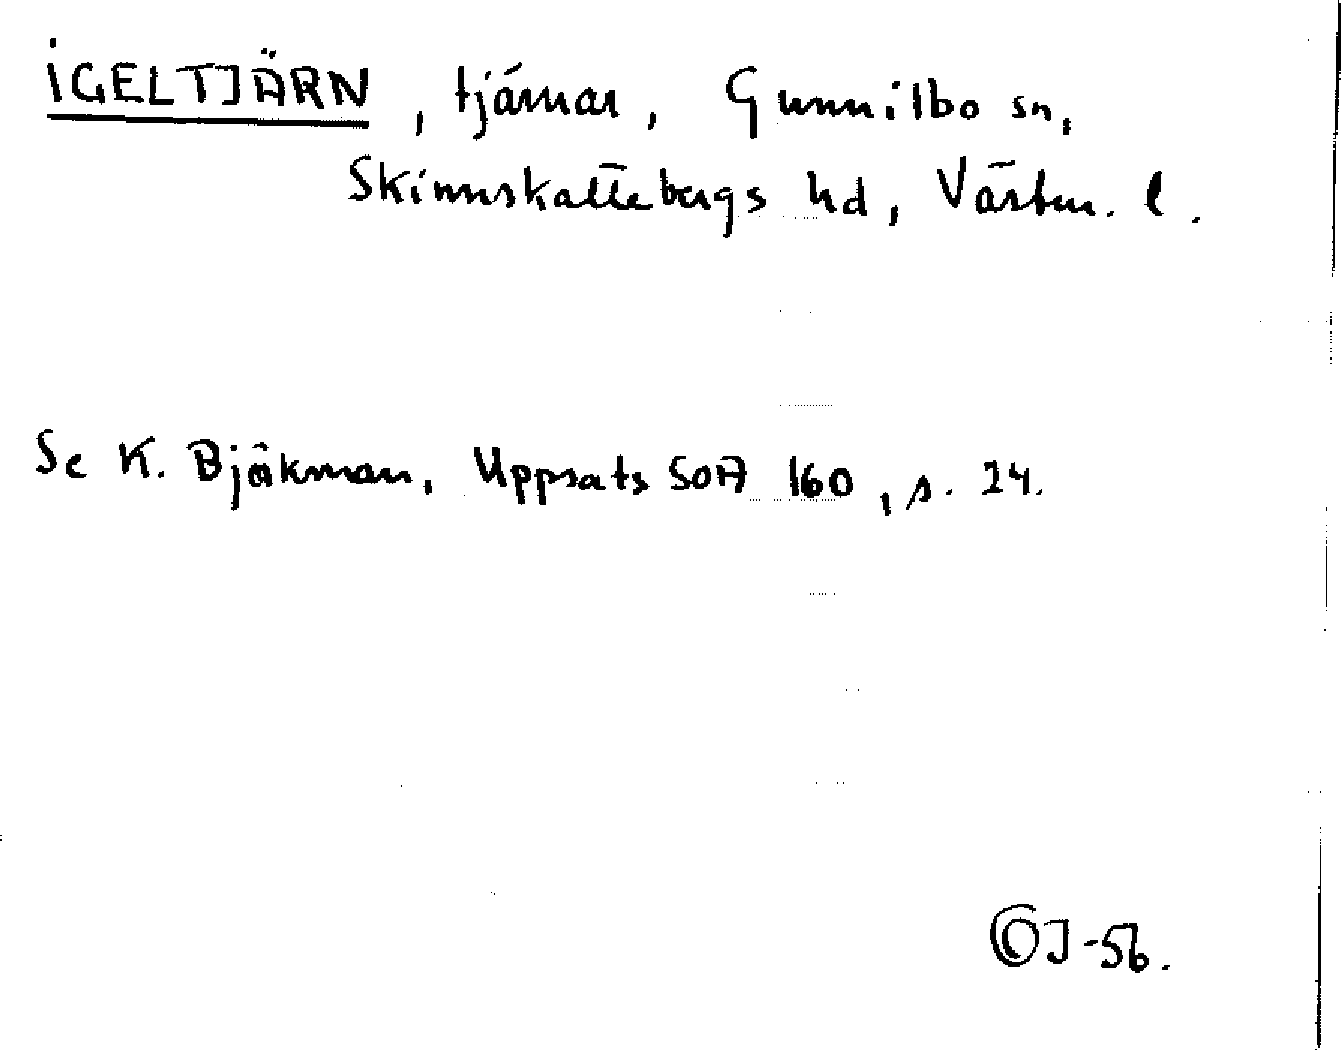 IGELTJÄRN, tjärnar, Gunnilbo sn,
Skinnskattebergs hd, Västm. l.
Se K. Björkman, Uppsats SOA 160, s. 24.
OJ-56.